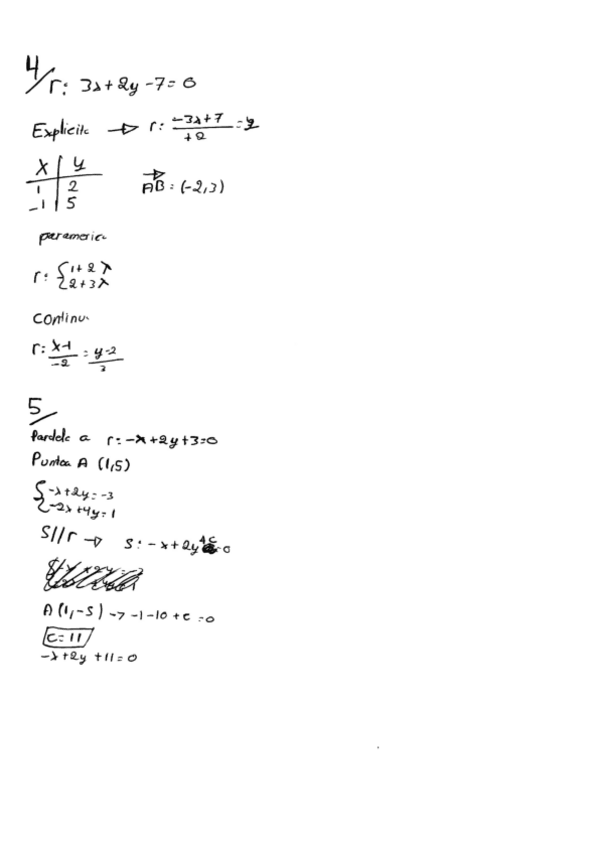 4/ r: 3x+2y-7=0
Explicita → r: -3x+7/+2 = y
x | y
1 | 2
-1 | 5
AB: (-2,3)
parametric
r: { 1+2λ
2+3λ
Continu
r: x-1/-2 = y-2/3
5/
Paralela a r: -x+2y+3=0
Puntoa A (1,5)
{ -x+2y=-3
-2x+4y=1
S//r → s: -x+2y+c=0
A(1,-5) → -1-10+c=0
c=11
-x+2y+11=0